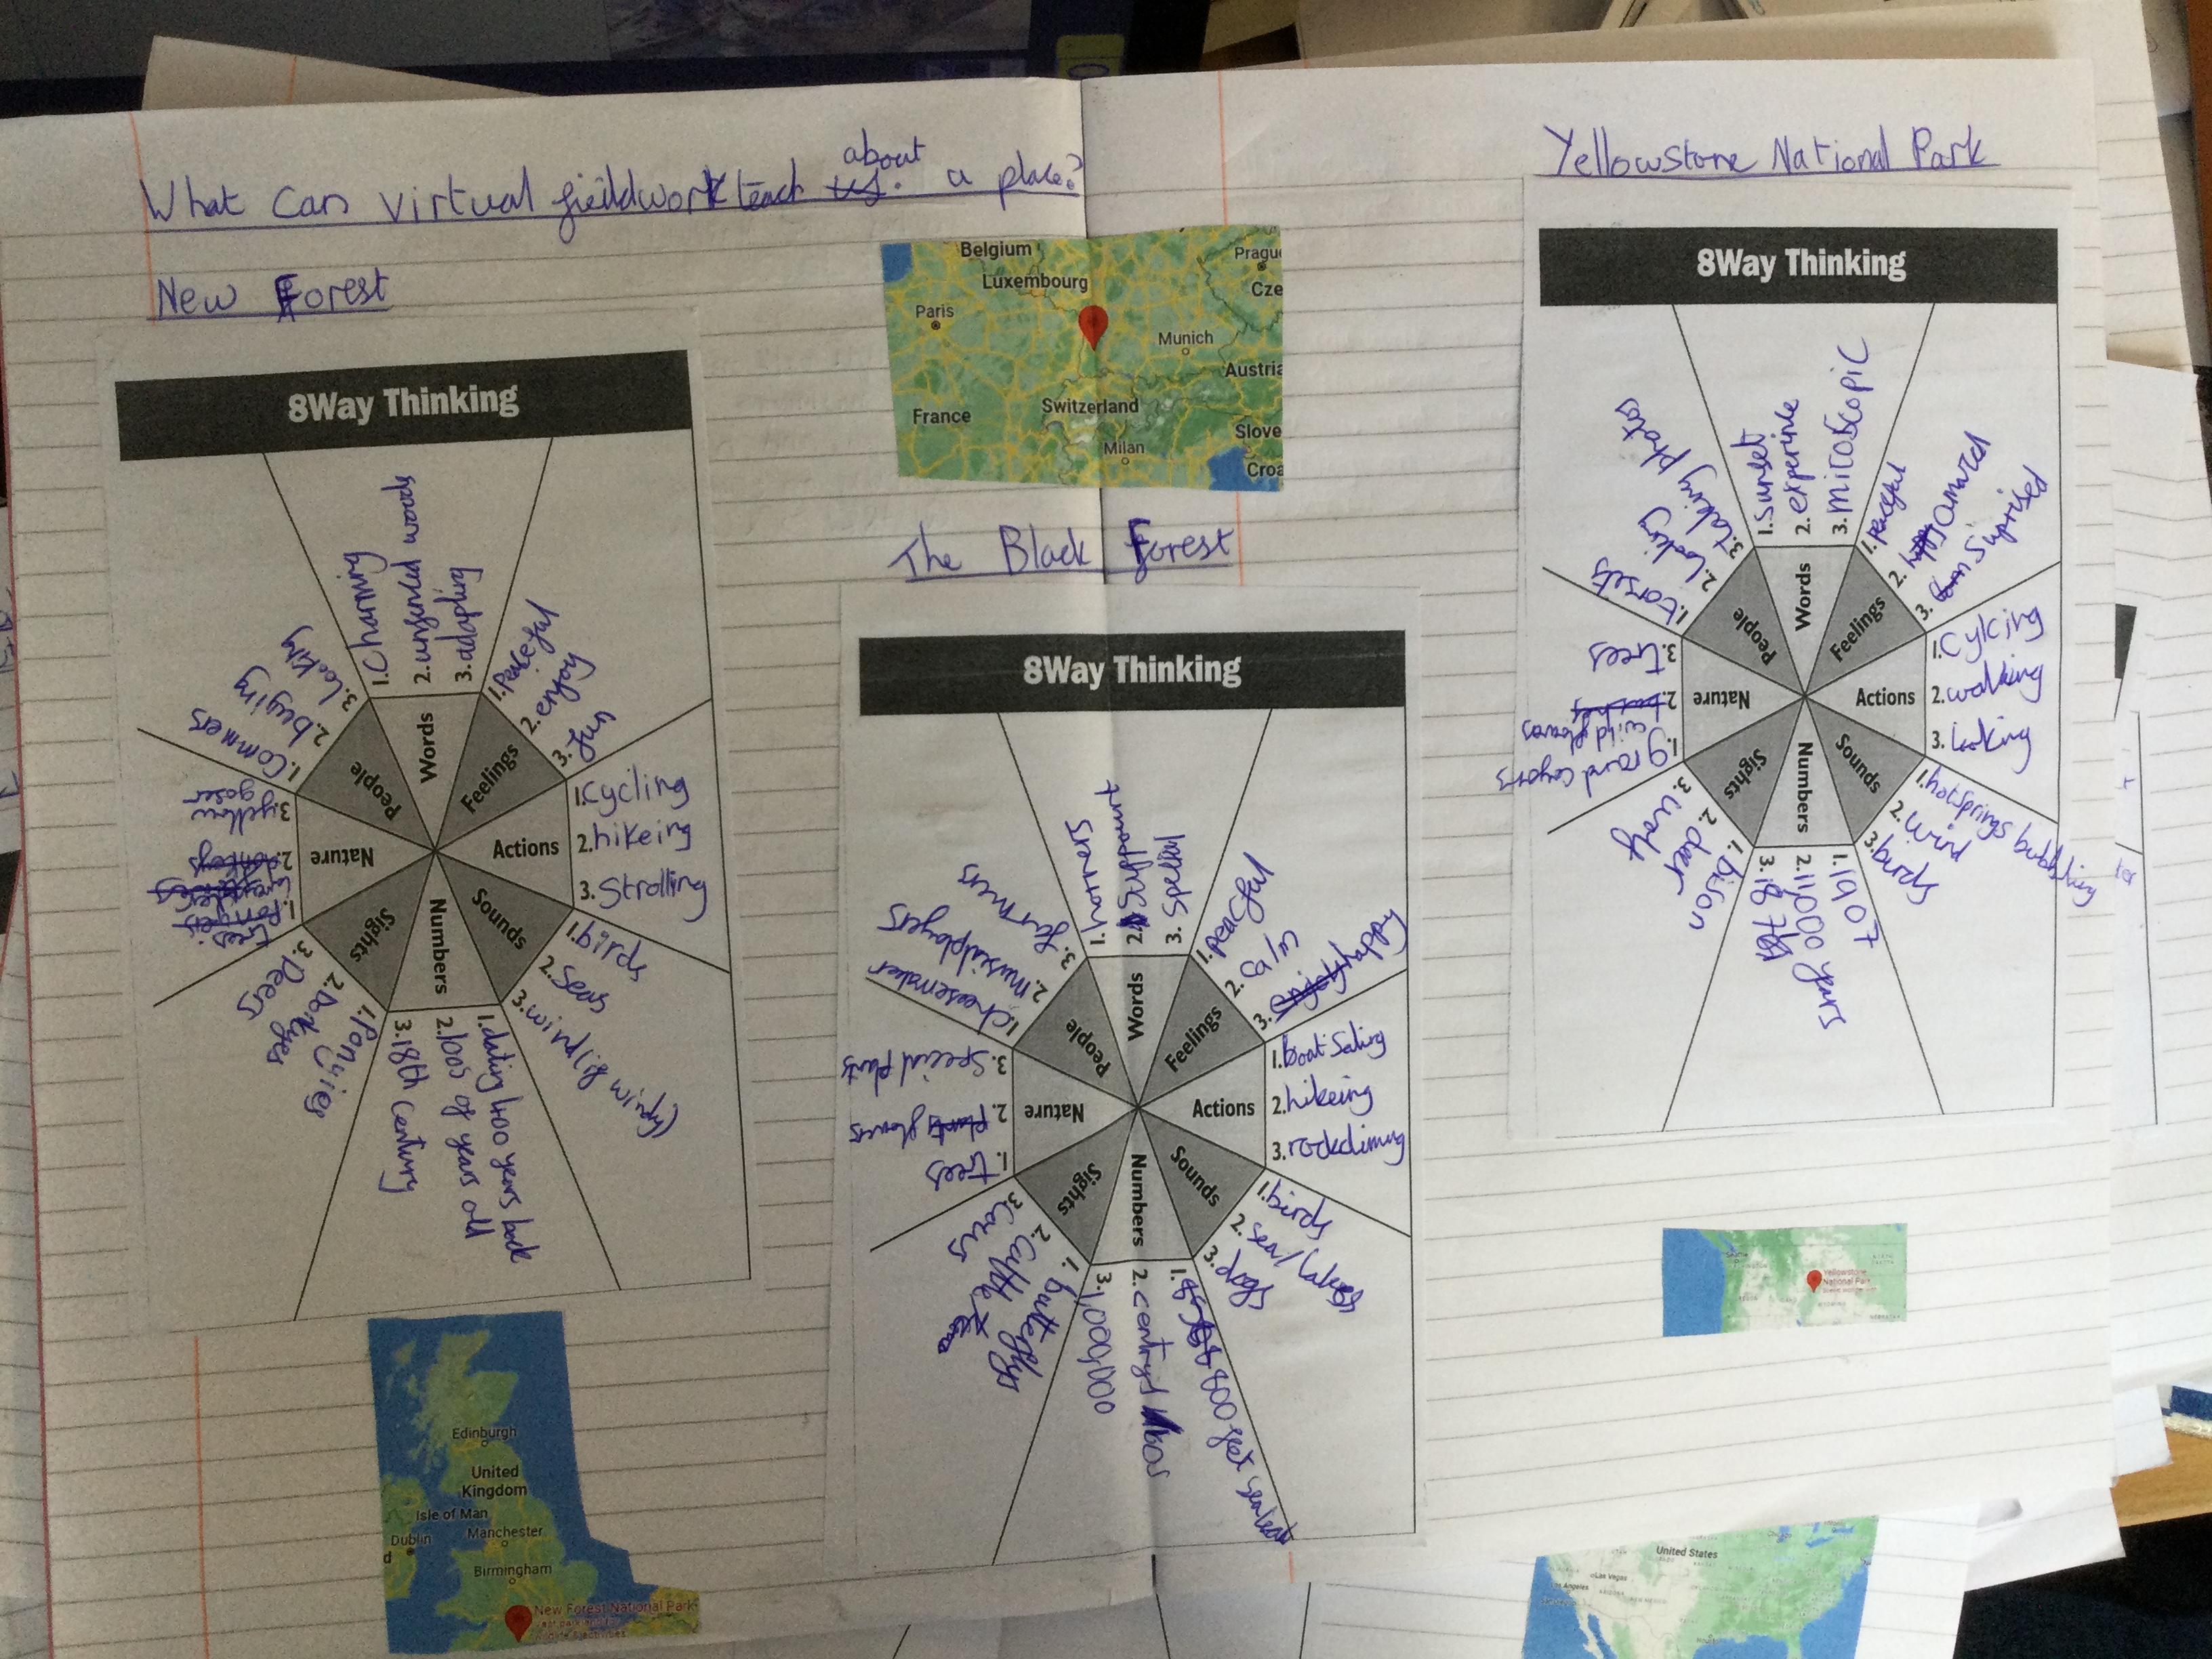 What Can virtual fieildwork teach us. about a place?
New Forest
8Way Thinking
Words
1. Charming
2. unfenced woods
3. adapting
Feelings
1. Peaceful
2. enjoy
3. fun
Actions
1. Cycling
2. hikeing
3. Strolling
Sounds
1. birds
2. Seas
3. wind
Numbers
1. dating 400 years back
2. 100s of years old
3. 18th Century
Sights
1. Ponyies
2. Donkyes
3. Deers
Nature
1. Ponyies trees
2. donkeys
3. yellow goser
People
1. Commers
2. buying
3. looking
Edinburgh
United
Kingdom
Isle of Man
Dublin
Manchester
Birmingham
New Forest National Park
Belgium
Luxembourg
Prague
Cze
Paris
Munich
Austria
France
Switzerland
Slove
Milan
Croa
The Black Forest
8Way Thinking
Words
1.
2.
3. Speical
Feelings
1. peacful
2. calm
3. enjoy happy
Actions
1. boat Saling
2. hikeing
3. rockcliming
Sounds
1. birds
2. sea/lakes
3. dogs
Numbers
1. 800 feet sealeal
2. century
3. 1,000,000
Sights
1. butterflys
2. Cattle
3. Cows
Nature
1. trees
2. plants flowers
3. Special Plants
People
1. cheesemaker
2. musicplayers
3. farmers
Yellowstone National Park
8Way Thinking
Words
1. Sunset
2. experine
3. microscopic
Feelings
1. peaceful
2. happy amazed
3. Suprised
Actions
1. Cylcing
2. walking
3. looking
Sounds
1. hotsprings bubbling
2. wind
3. birds
Numbers
1.
2. 11,000 years
3. 18
Sights
1. bison
2. deer
3.
Nature
1. ground
2. bushes wild flowers
3. trees
People
1.
2. looking
3. taking photos
Seattle
Yellowstone
National Park
United States
Las Vegas